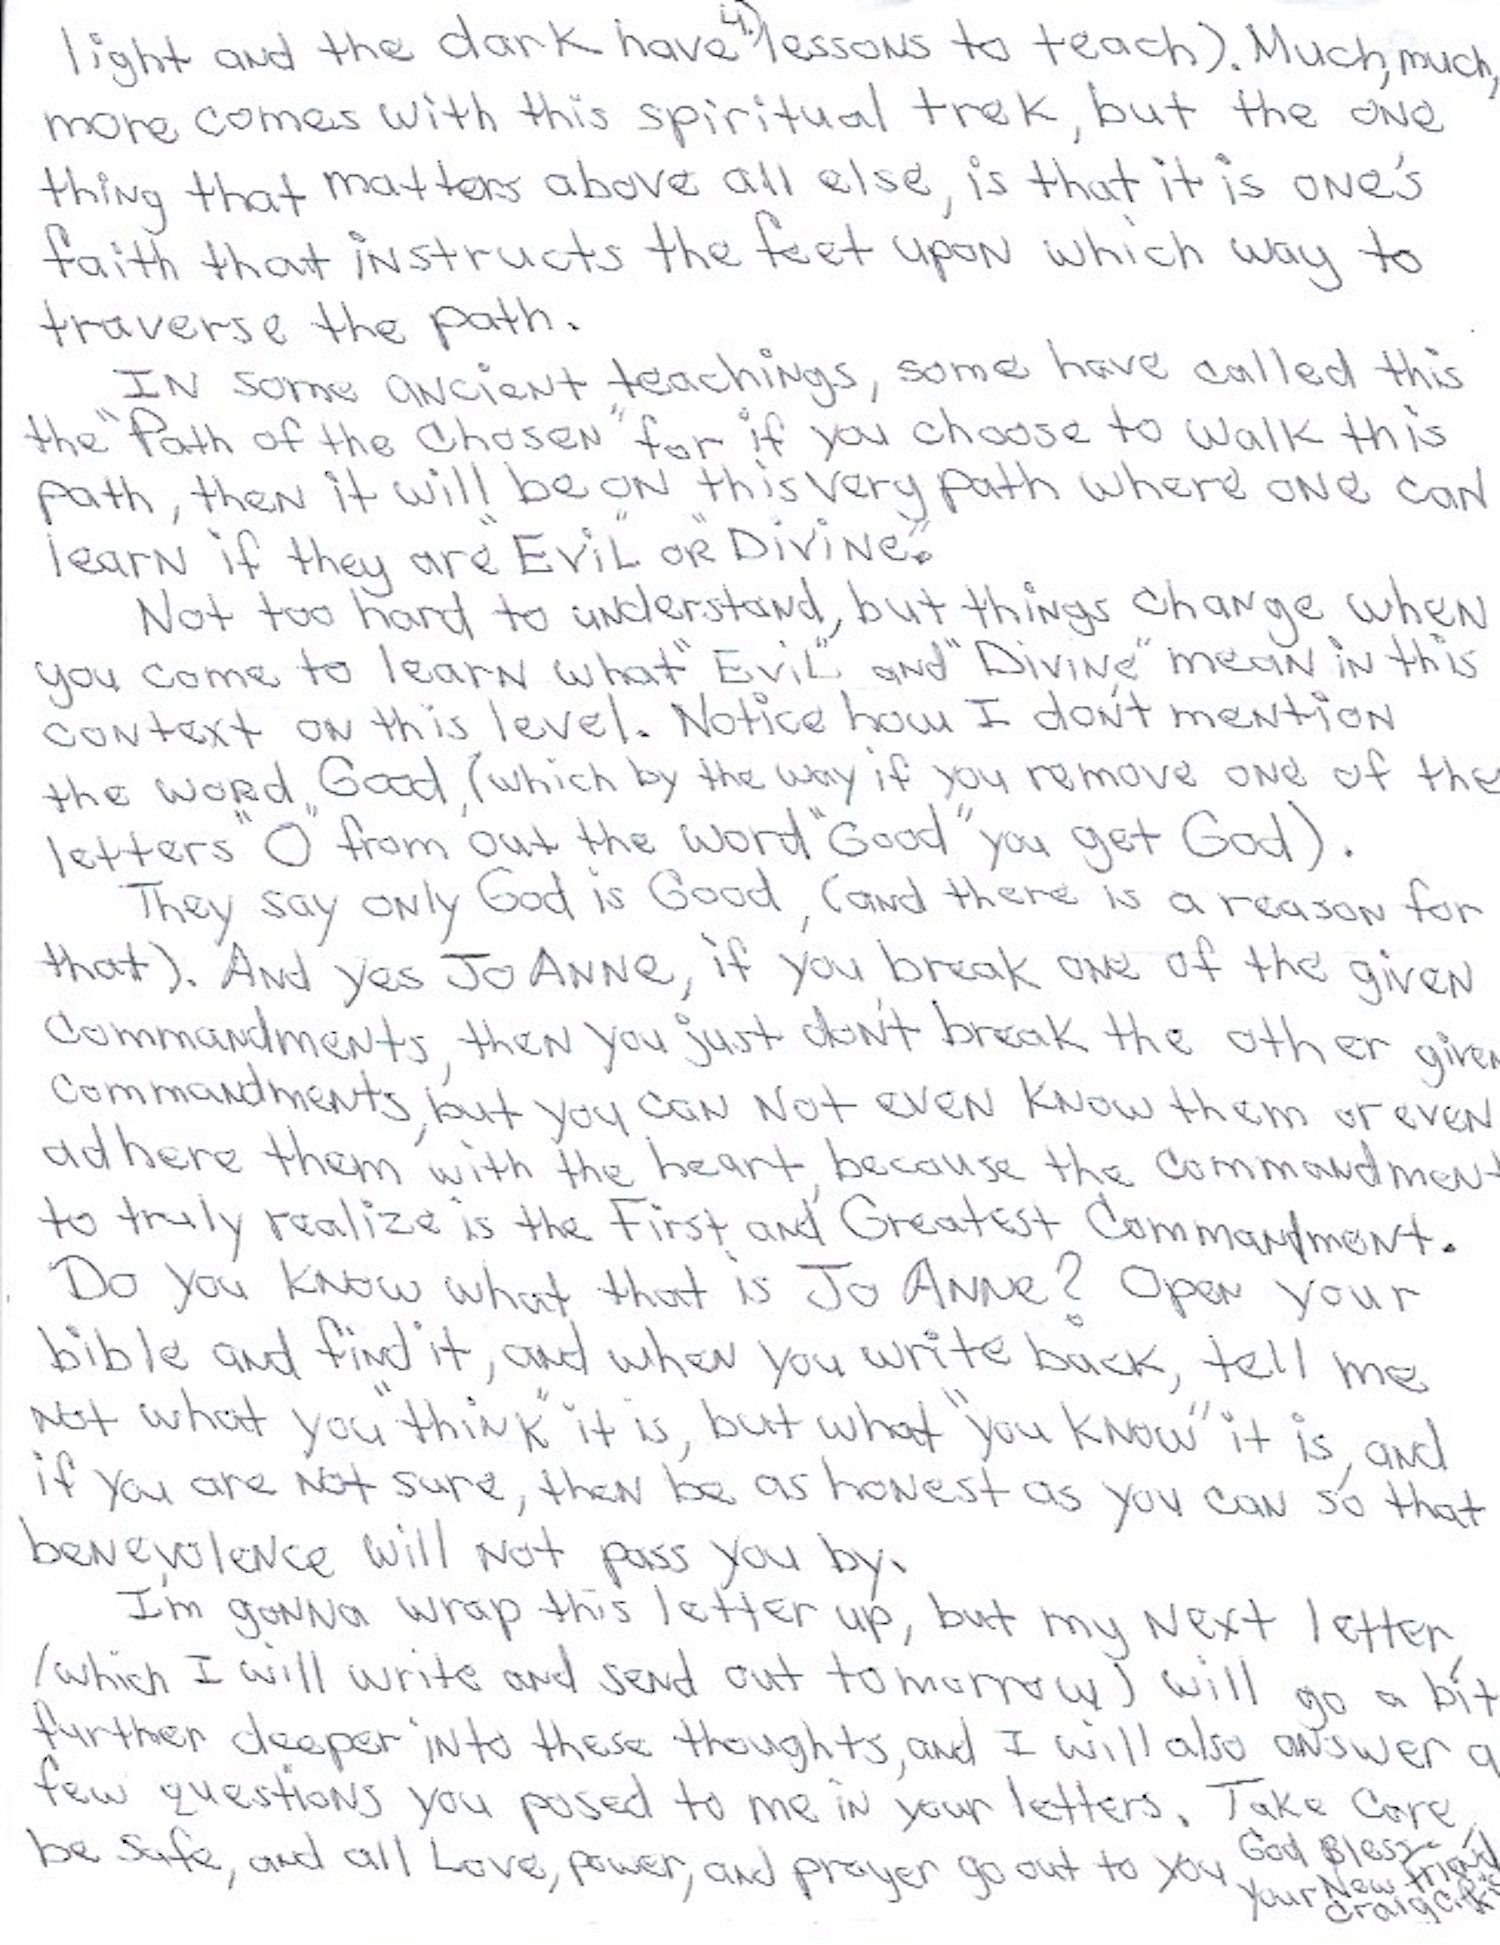 4.)
light and the dark have lessons to teach). Much, much,
more comes with this spiritual trek, but the one
thing that matters above all else, is that it is one's
faith that instructs the feet upon which way to
traverse the path.
In some ancient teachings, some have called this
the "Path of the Chosen" for if you choose to walk this
path, then it will be on this very path where one can
learn if they are "EviL" or "Divine".
Not too hard to understand, but things change when
you come to learn what "EviL" and "Divine" mean in this
context on this level. Notice how I don't mention
the word Good, (which by the way if you remove one of the
letters "O" from out the word "Good" you get God).
They say only God is Good, (and there is a reason for
that). And yes Jo Anne, if you break one of the given
Commandments, then you just don't break the other given
Commandments, but you can not even know them or even
adhere them with the heart, because the Commandment
to truly realize is the First and Greatest Commandment.
Do you know what that is Jo Anne? Open your
bible and find it, and when you write back, tell me
not what you "think" it is, but what "you know" it is, and
if you are not sure, then be as honest as you can so that
benevolence will not pass you by.
I'm gonna wrap this letter up, but my next letter,
(which I will write and send out tomorrow) will go a bit
further deeper into these thoughts, and I will also answer a
few questions you posed to me in your letters. Take Care,
be safe, and all Love, power, and prayer go out to you
God Bless
Your New friend
Craig